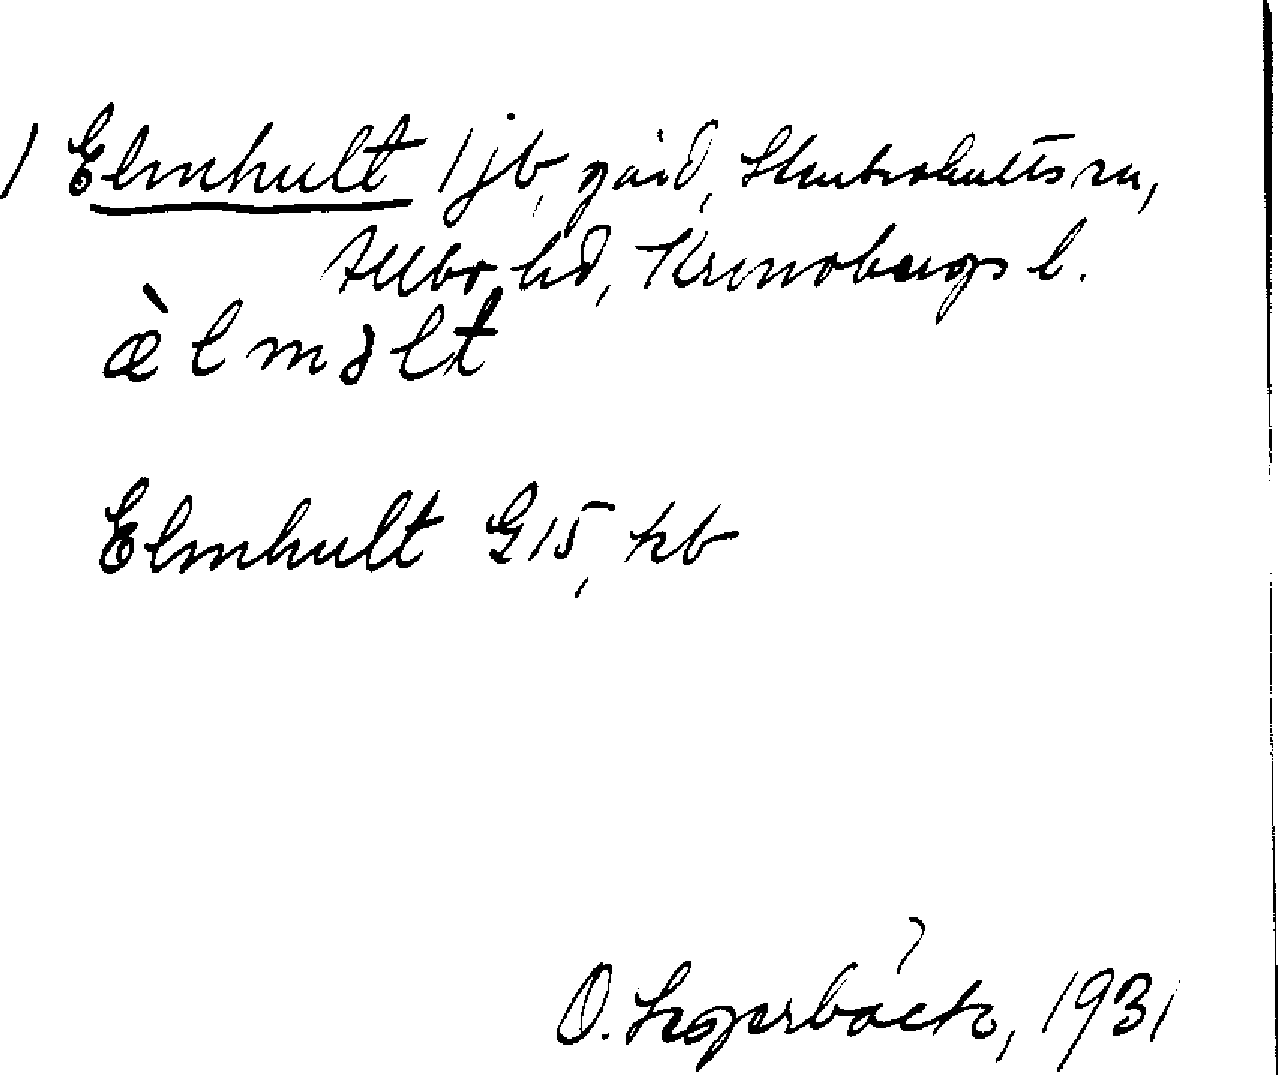 1 Elmhult 1 jb, gård, Stenbrohults sn,
Allbo hd, Kronobergs l.
æ̀lməlt
Elmhult G15, kb
O. 1931